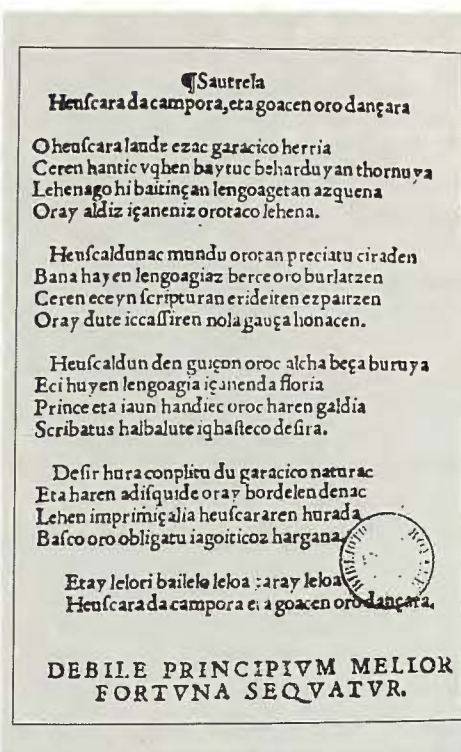 ¶Sautrela
Heuſcara da campora, eta goacen oro dançara
O heuſcara laude ezac garacico herria
Ceren hantic vqhen baytuc beharduyan thornuya
Lehenago hi baitinçan lengoagetan azquena
Oray aldiz içaneniz orotaco lehena.
Heuſcaldunac mundu orotan preciatu ciraden
Bana hayen lengoagiaz berce oro burlatzen
Ceren eceyn ſcripturan erideiten ezpaitzen
Oray dute iccaſſiren nola gauça honacen.
Heuſcaldun den guiçon oroc alcha beça buruya
Eci huyen lengoagia içanenda floria
Prince eta iaun handiec oroc haren galdia
Scribatus halbalute iqhaſteco deſira.
Deſir hura conplitu du garacico naturac
Eta haren adiſquide oray bordelen denac
Lehen imprimiçalia heuſcararen hurada
Baſco oro obligatu iagoiticoz hargana
Etay lelori bailelo leloa çaray leloa
Heuſcara da campora eta goacen oro dançara.
BIBLIOTH ROYALE
DEBILE PRINCIPIVM MELIOR
FORTVNA SEQVATVR.